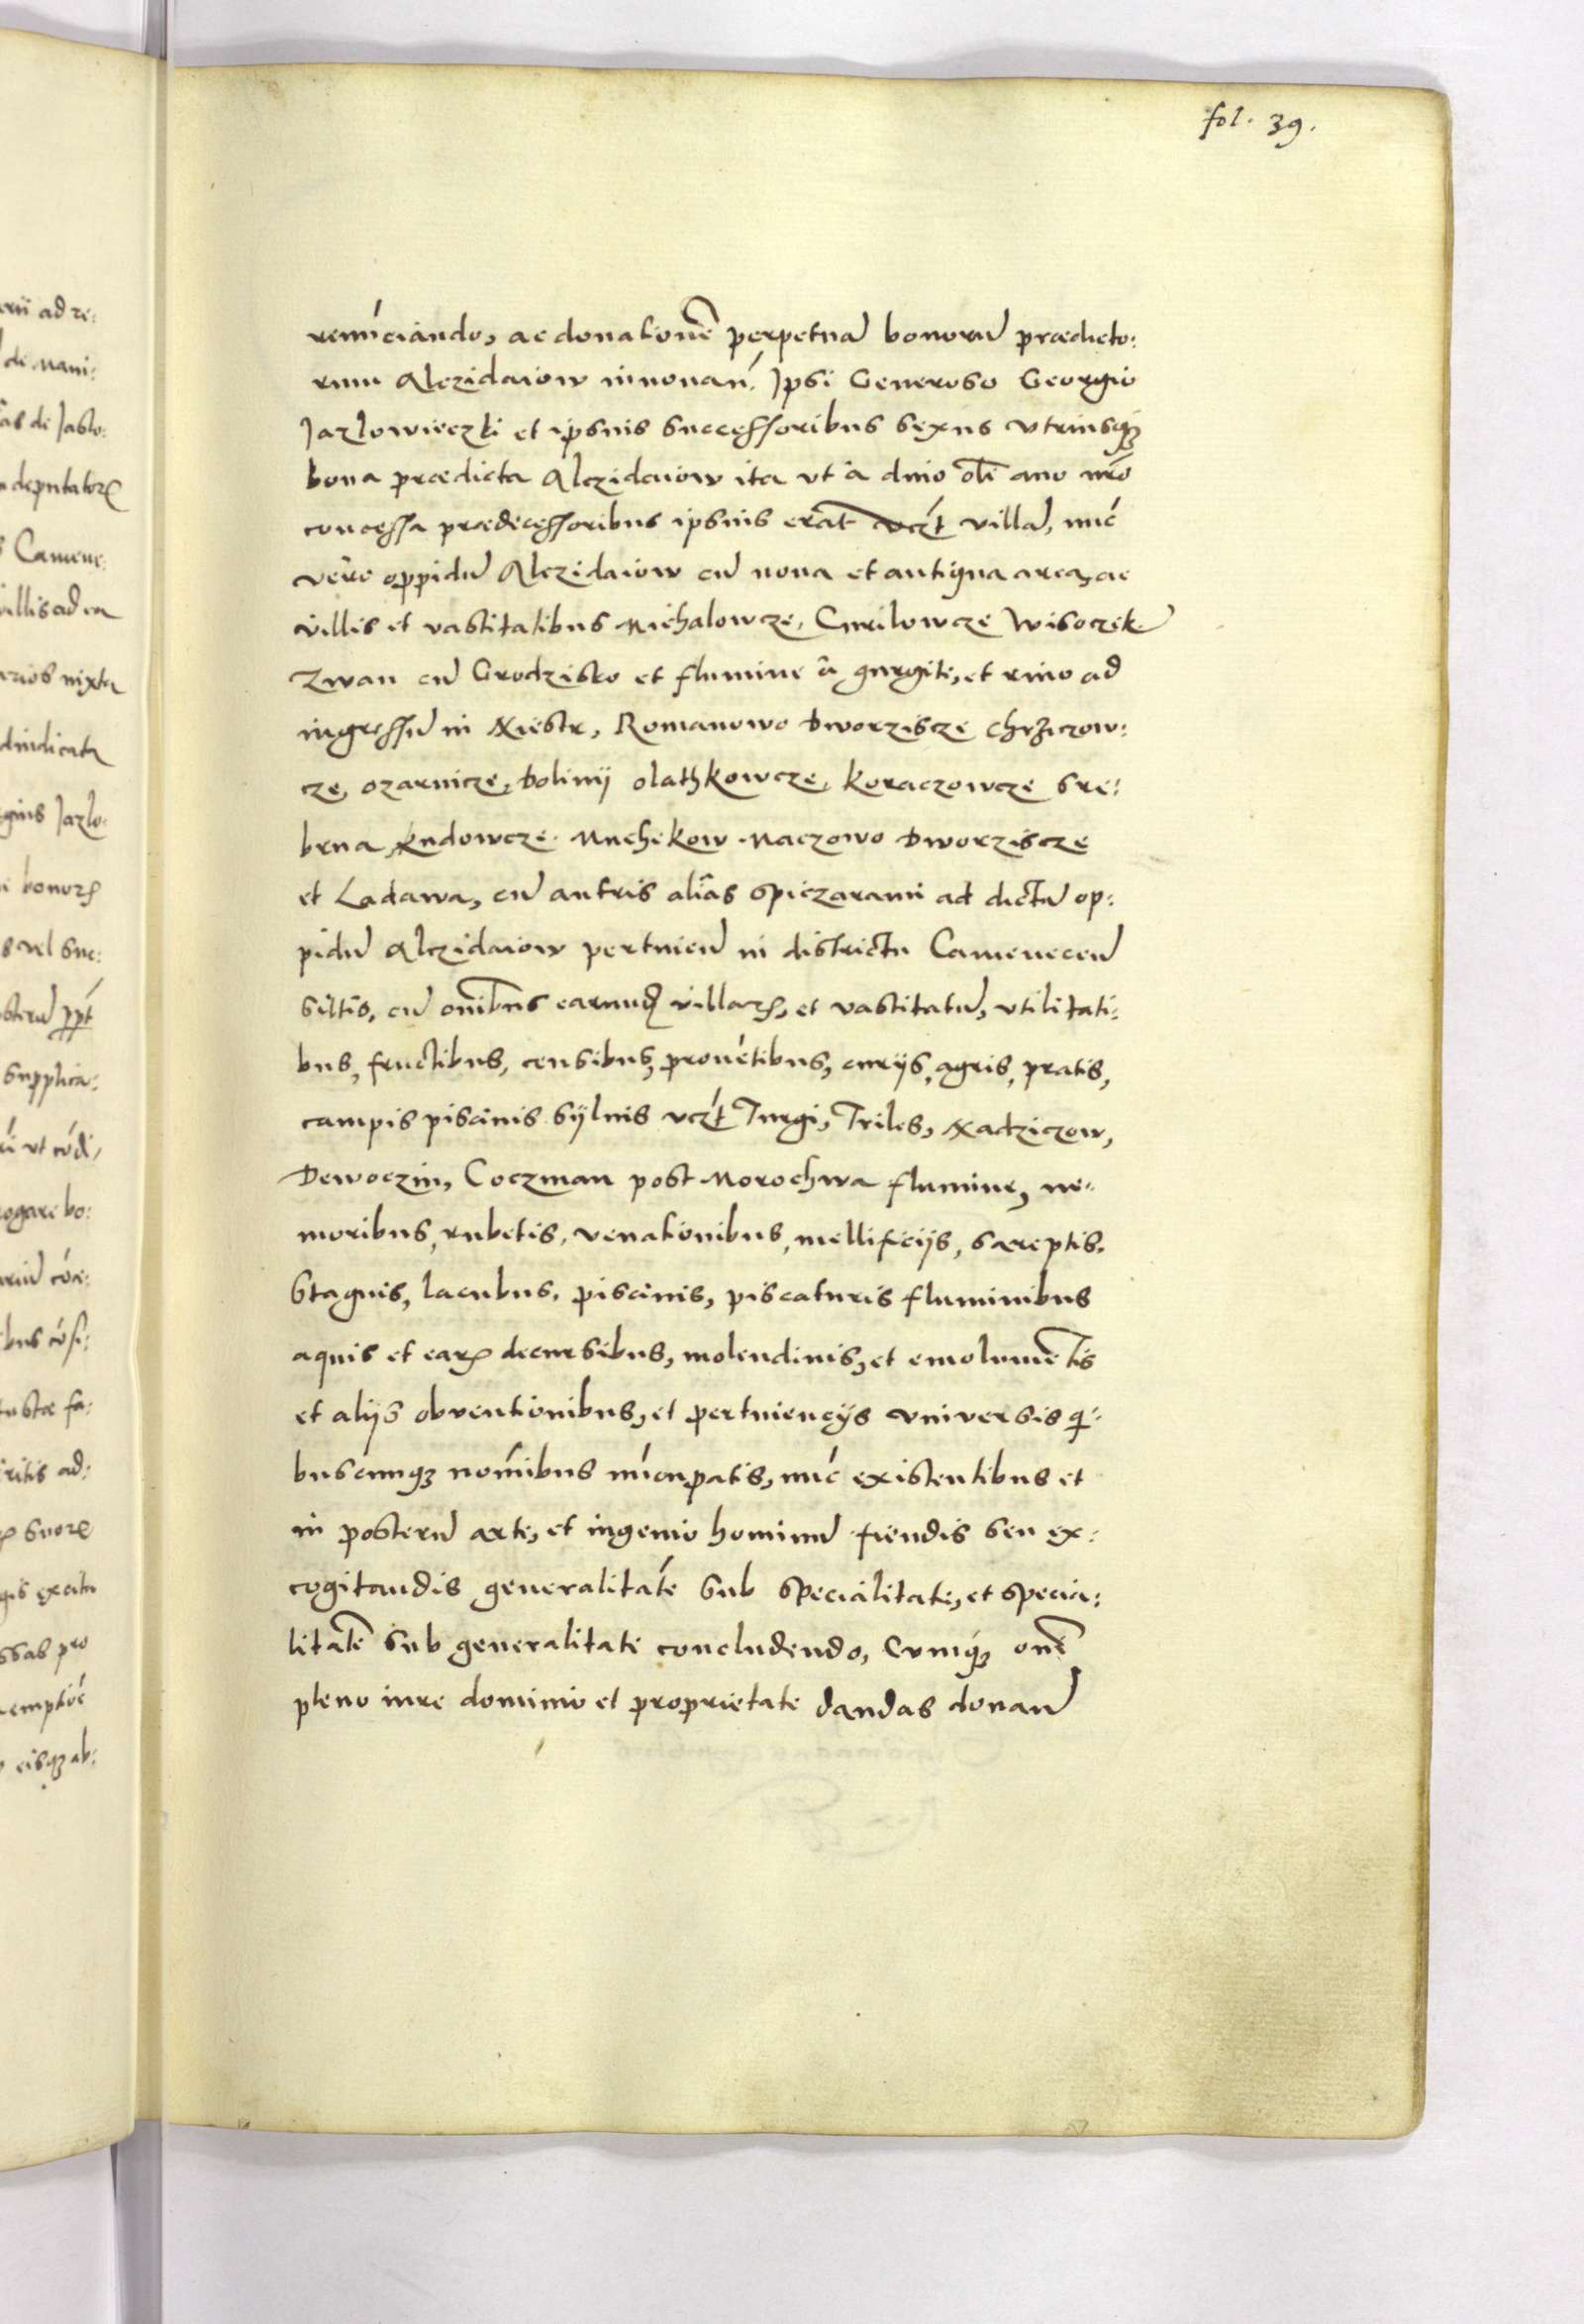 fol. 39.
renúciando, ac donationē perpetuā bonorū prædicto:
rum Alczidaiow innouan. Ipsi Generoso Georgio
Jazlowieczki et ipsius successoribus sexus vtriusq;
bona prædicta Alczidaiow ita vt à dnio oli auo nro
concessa prædecessoribus ipsius erāt vczt villā, núc
vero oppidū Alczidaiow cū noua et antiqua area, ac
villis et vastitatibus Michalowcze, Curilowcze Wisoczek
Zwan cū Grodzisko et flumine à gurgite, et riuo ad
ingressū in Niestr, Romanowo Dworziscze Chrziczow:
cze, ozarnicze, Dolinij olathkowcze, Koraczowcze Sre:
brna Kudowcze. Muchekow. Naczowo Dworziscze
et Ladawa, cū antris alias spiczarami ad dictū op:
pidū Alczidaiow pertinen in districtu Camenecen
sitis, cū oibus earund villar, et vastitatū, vtilitati:
bus, fructibus, censibus, prouétibus, curijs, agris, pratis,
campis piscinis syluis vczt Turgi, Triles, Nadziczow,
Dewoczin, Coczman post Morochwa flumine, ne:
moribus, rubetis, venationibus, mellificijs, sareptis.
Stagnis, lacubus, piscinis, piscaturis fluminibus
aquis et ear decursibus, molendinis, et emolumētis
et alijs obventionibus, et pertinencijs vniversis q:
buscunq; nomíbus núcupatis, núc existentibus et
in posterū arte, et ingenio hominū fiendis seu ex:
cogitandis generalitaté sub specialitate, et specia:
litatē sub generalitate concludendo, Cumq; onē
pleno iure dominio et proprietate dandas donan